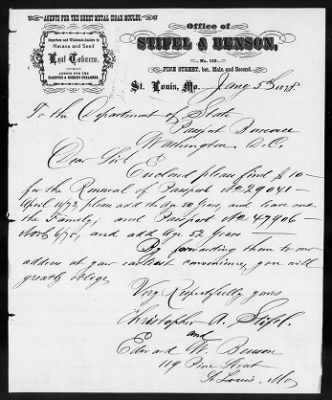 AGENTS FOR THE SHEET METAL CIGAR MOULDS.
Office of
STIFEL & BENSON,
Important and Wholesale Dealers in
Havana and Seed
Leaf Tobacco.
AGENTS FOR THE
No. 119
PINE STREET, bet. Main and Second.
St. Louis, Mo. Jany 5th 1878
To the Department of State
Passport Bureau
Washington D.C.
Dear Sir!
Enclosed please find $10-
for the Renewal of Passport No 29041 -
April 11/73, please add the age 50 years, and leave out
the Family; and Passport No 47906 -
Novb 6/75, and add Age 52 Years -
By forwarding them to our
address at your earliest convenience, you will
greatly oblige,
Very Respectfully yours
Christopher A. Stifel.
and
Edward W. Benson
119 Pine Street
St Louis, Mo